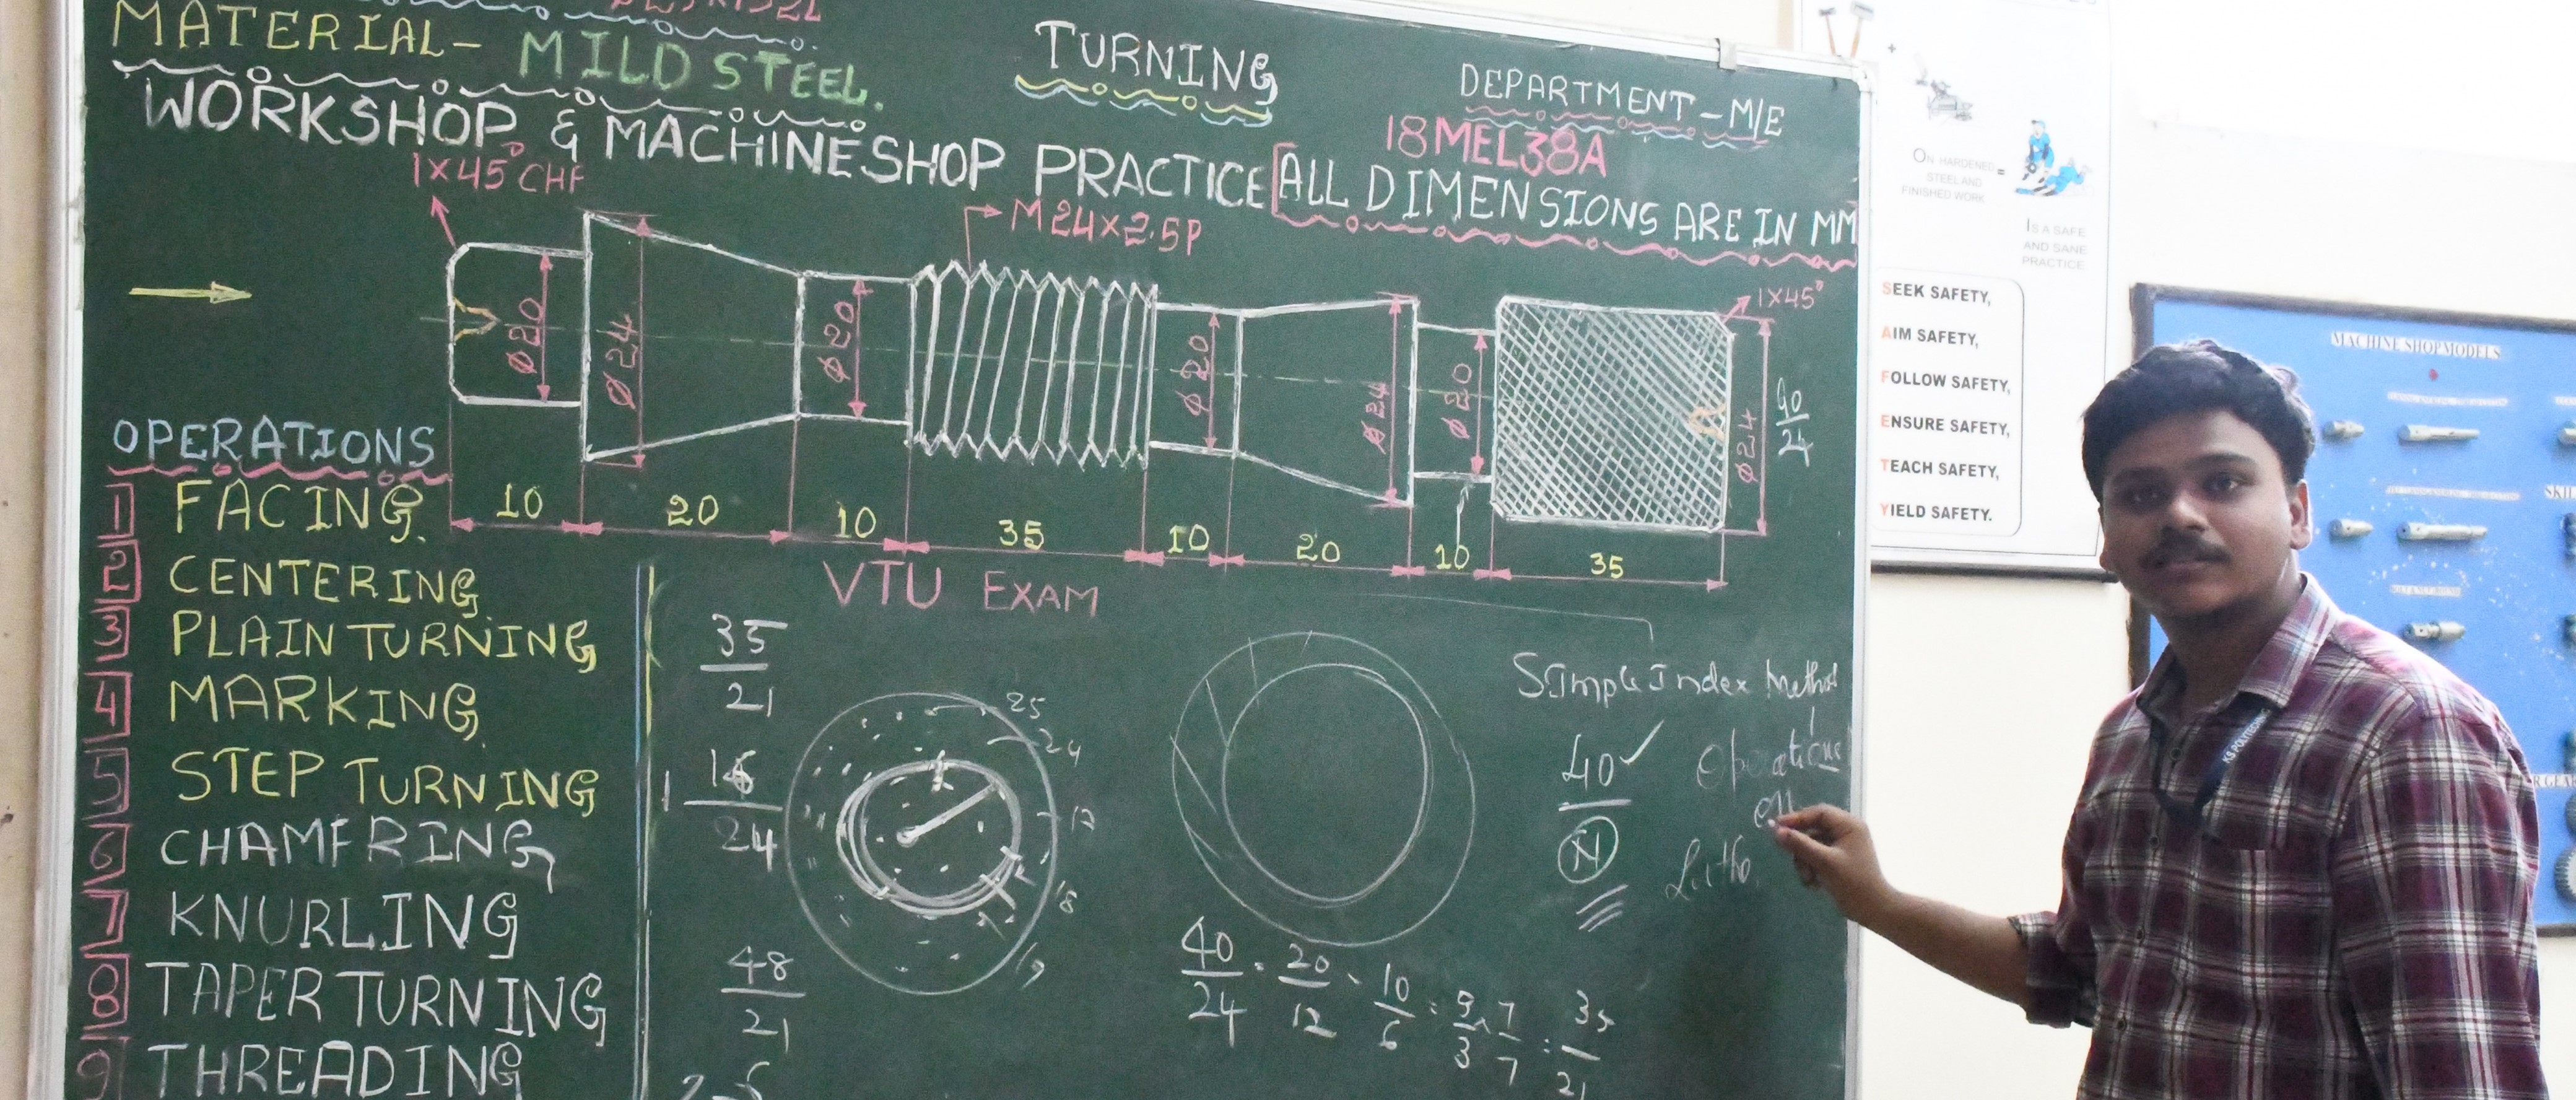 MATERIAL- MILD STEEL.
TURNING
DEPARTMENT-M/E
WORKSHOP & MACHINE SHOP PRACTICE
18MEL38A
[ALL DIMENSIONS ARE IN MM
1X45° CHF
M24X2.5P
1X45°
Ø20
Ø24
Ø20
Ø20
Ø24
Ø20
Ø24
40/24
10 20 10 35 10 20 10 35
VTU EXAM
OPERATIONS
1 FACING.
2 CENTERING
3 PLAIN TURNING
4 MARKING
5 STEP TURNING
6 CHAMFRING
7 KNURLING
8 TAPER TURNING
9 THREADING
35/21
48/21
25
24
12
18
19
Simple Index Method
40/N
40/24 20/12 10/6
35/21
ON HARDENED
STEEL AND
FINISHED WORK
=
IS A SAFE
AND SANE
PRACTICE
SEEK SAFETY,
AIM SAFETY,
FOLLOW SAFETY,
ENSURE SAFETY,
TEACH SAFETY,
YIELD SAFETY.
MACHINE SHOP MODELS